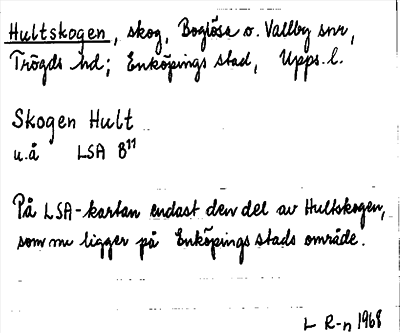 Hultskogen, skog, Boglösa o. Vallby snr,
Trögds hd; Enköpings stad, Upps. l.
Skogen Hult
u.å LSA 8¹¹
På LSA-kartan endast den del av Hultskogen,
som nu ligger på Enköpings stads område.
L R-n 1968